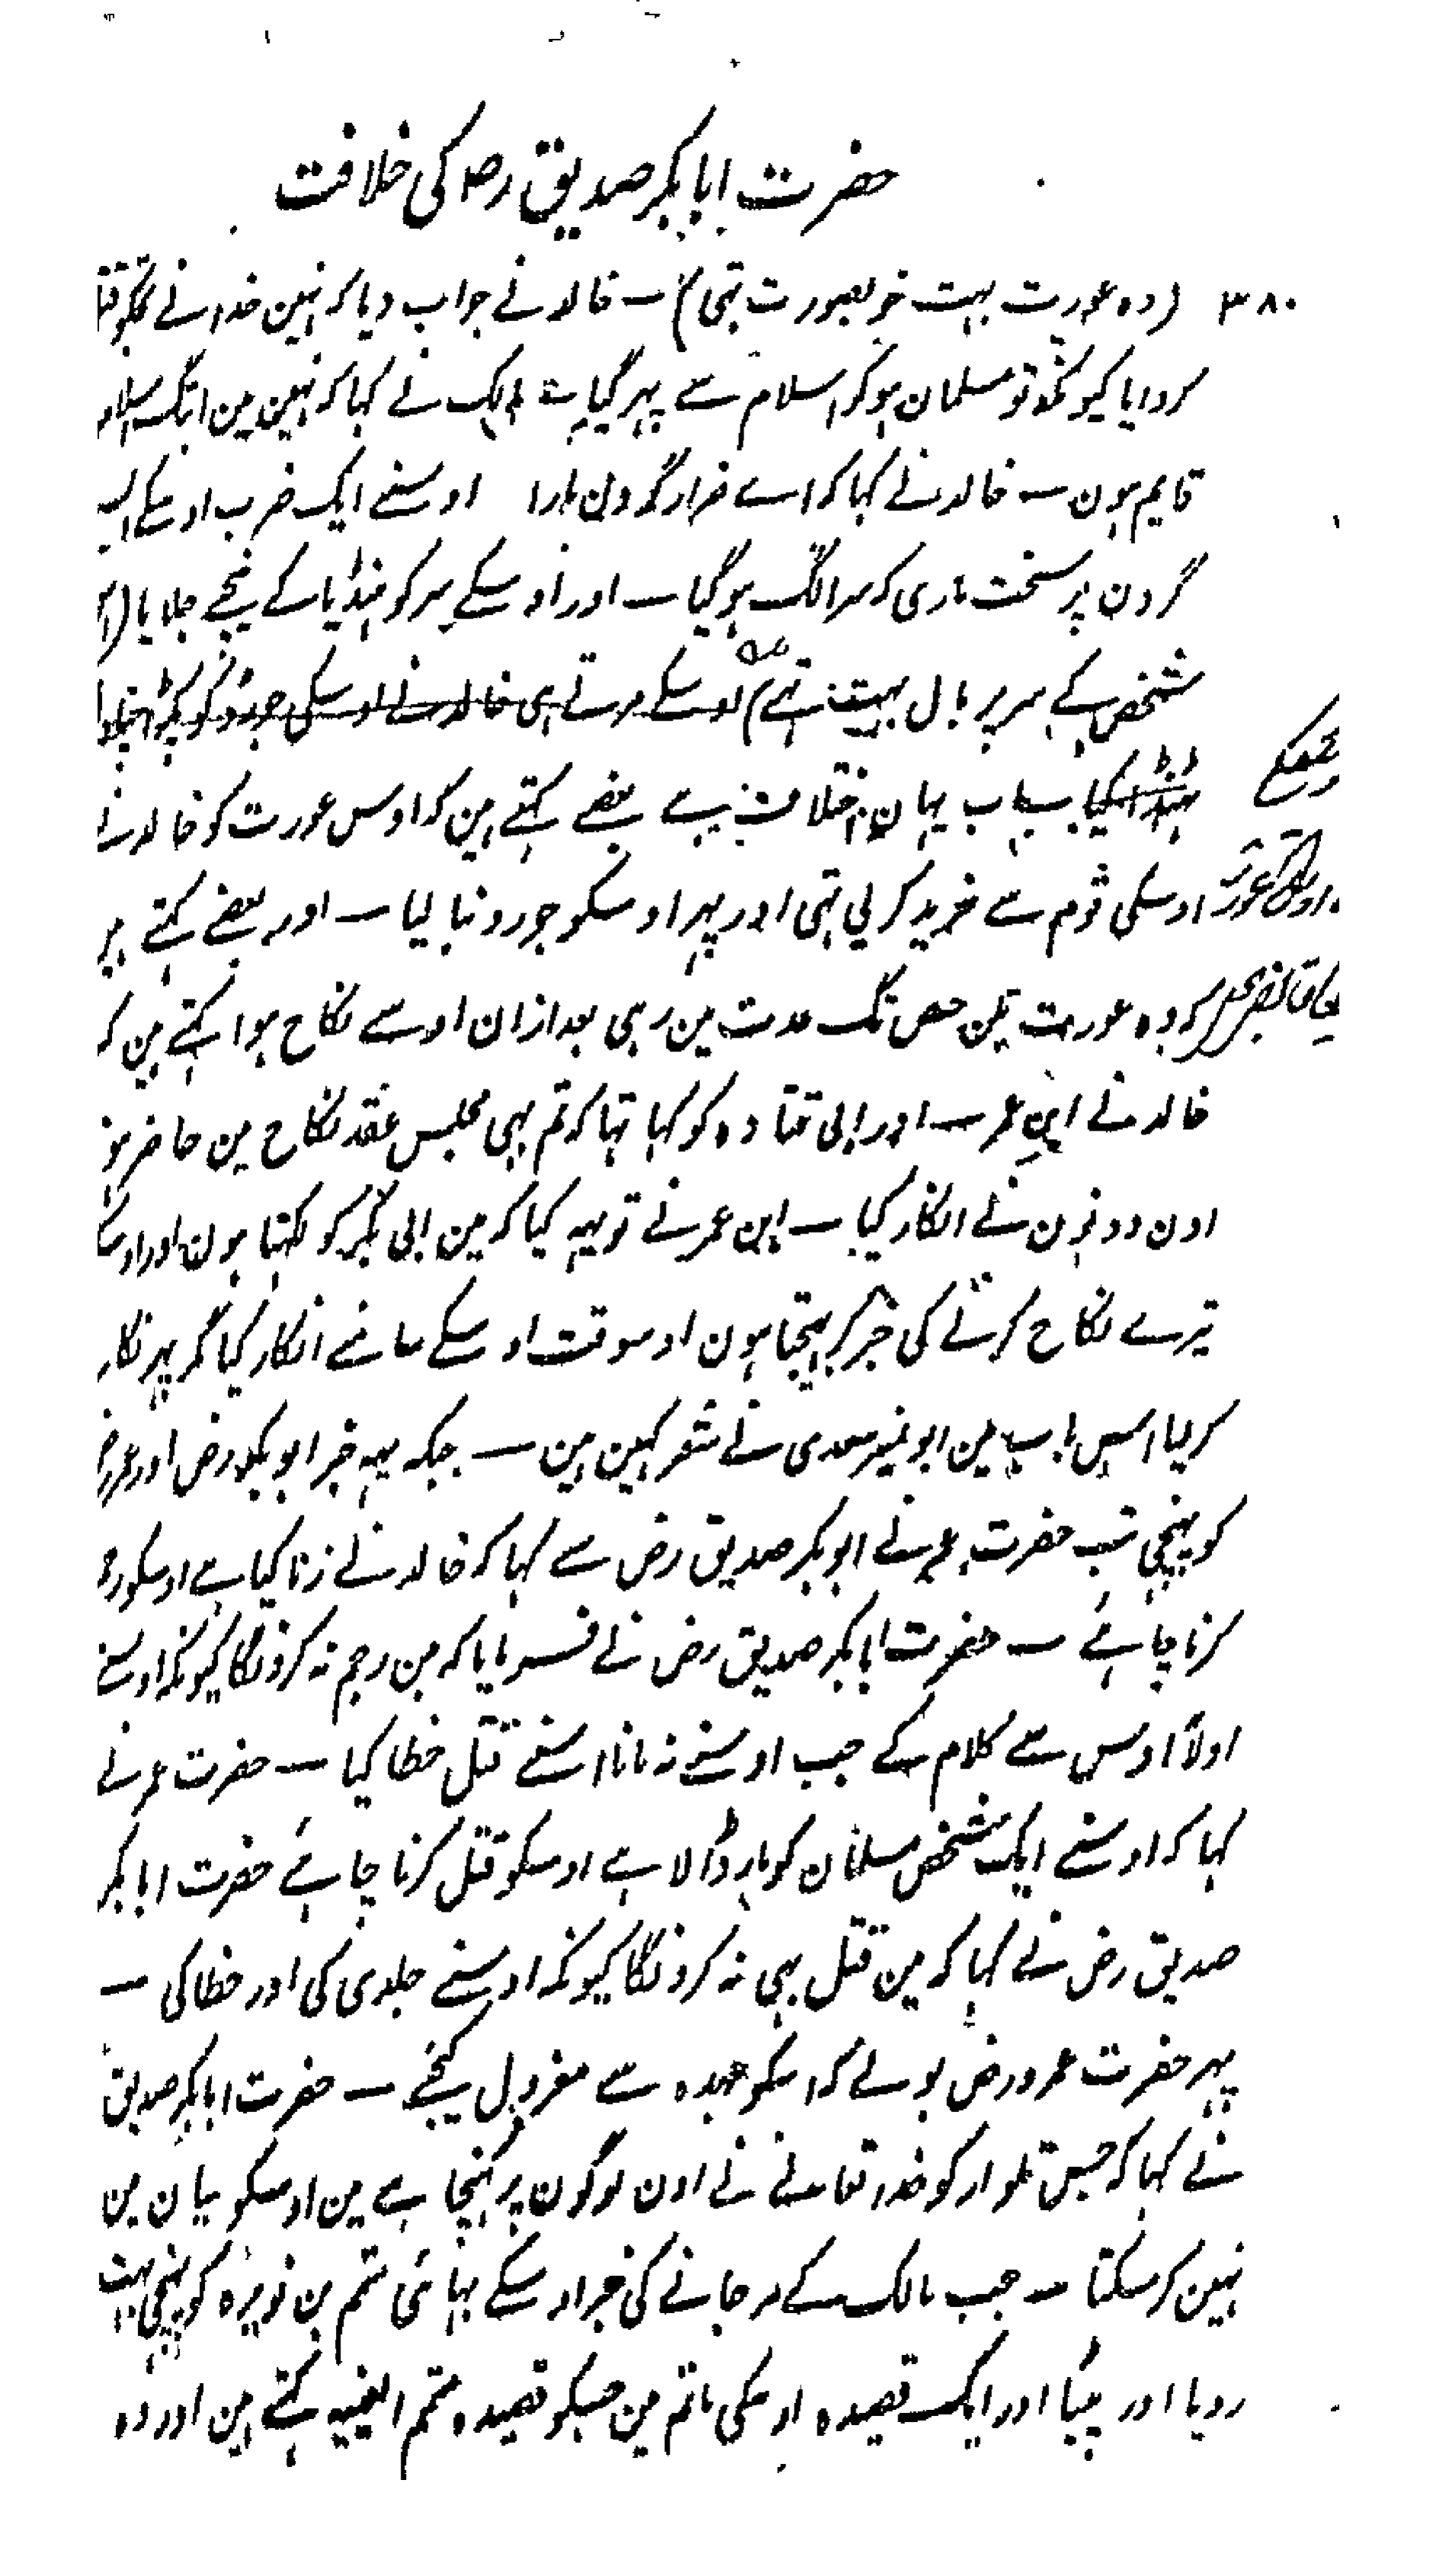 حضرت ابابکر صدیق رض کی خلافت
۳۸۰ (وہ عورت بہت خوبصورت تہی) — خالد نے جواب دیا کہ نہین خدا نے تجکو قتل
کروایا کیونکہ تو مسلمان ہوکر اسلام سے پہر گیا ہے مالک نے کہا کہ نہین مین ابتک اسلام
قایم ہون — خالد نے کہا کہ اے ضرار گردن مارا اوسنے ایک ضرب اوسکے
گردن پر سخت ماری کہ سر الگ ہوگیا — اور اوسکے سر کو ہنڈیا کے نیچے جلایا (
شخص کے سر پر بال بہت تہے) اوسکے مرتے ہی خالد نے اوسکی جورو کو پکڑ
ہنڈا کیا اب یہان اختلاف ہے بعضے کہتے ہین کہ اوس عورت کو خالد نے
اوسکی قوم سے خرید کر لی تہی اور پہر اوسکو جورو بنا لیا — اور بعضے کہتے ہین
کہ وہ عورت تین حیض تک عدت مین رہی بعد ازان اوسے نکاح ہوا کہتے ہین کہ
خالد نے ابن عمر — اور ابی قتادہ کو کہا تہا کہ تم بہی مجلس عقد نکاح مین حاضر ہو
اون دونون نے انکار کیا — ابن عمر نے تو یہہ کیا کہ مین ابی بکر کو لکہتا ہون اور
تیرے نکاح کرنے کی خبر بہیجتا ہون اوسوقت اوسکے سامنے انکار کیا مگر پہر نکاح
کر لیا اس باب مین ابو نمیر سعدی نے شعر کہین ہین — جبکہ یہہ خبر ابوبکر رض اور عمر رض
کو پہنچی تب حضرت عمر نے ابوبکر صدیق رض سے کہا کہ خالد نے زنا کیا ہے اوسکو رجم
کرنا چاہئے — حضرت ابابکر صدیق رض نے فرمایا کہ مین رجم نہ کرونگا کیونکہ اوسنے
اولاً اوس سے کلام کے جب اوسنے نہ مانا اسنے قتل خطا کیا — حضرت عمر نے
کہا کہ اوسنے ایک شخص مسلمان کو مار ڈالا ہے اوسکو قتل کرنا چاہئے حضرت ابابکر
صدیق رض نے کہا کہ مین قتل بہی نہ کرونگا کیونکہ اوسنے جلدی کی اور خطا کی —
پہر حضرت عمر رض بولے کہ اسکو عہدہ سے معزول کیجئے — حضرت ابابکر صدیق
نے کہا کہ جس تلوار کو خدا تعالے نے اون لوگون پر کہنچا ہے مین اوسکو میان مین
نہین کر سکتا — جب مالک کے مر جانے کی خبر اوسکے بہائی متمم بن نویرہ کو پہنچی بہت
رویا اور پیٹا اور ایک قصیدہ اوسکی ماتم مین جسکو قصیدہ متمم العینیہ کہتے ہین اور وہ